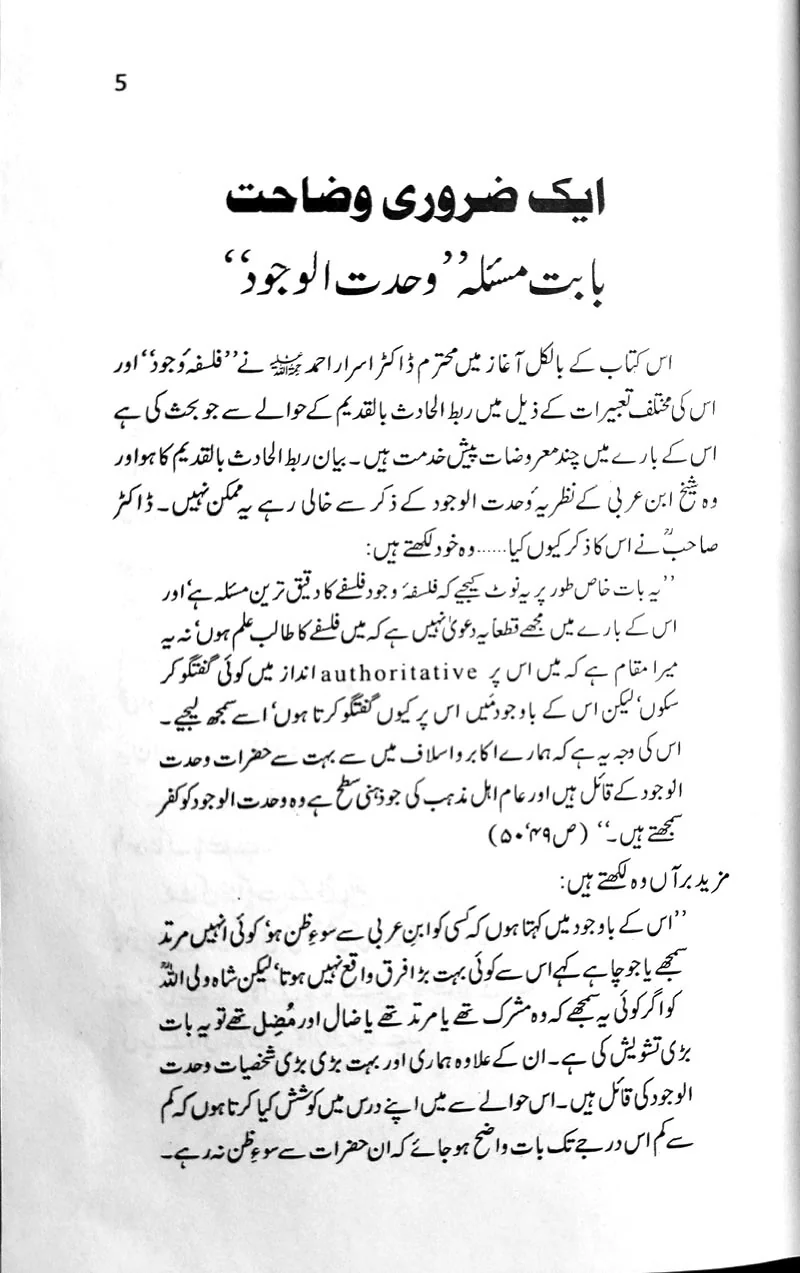 5
ایک ضروری وضاحت
بابت مسئلہ ”وحدت الوجود“
اس کتاب کے بالکل آغاز میں محترم ڈاکٹر اسرار احمد رحمۃ اللہ علیہ نے ”فلسفۂ وجود“ اور
اس کی مختلف تعبیرات کے ذیل میں ربط الحادث بالقدیم کے حوالے سے جو بحث کی ہے
اس کے بارے میں چند معروضات پیش خدمت ہیں۔ بیان ربط الحادث بالقدیم کا ہو اور
وہ شیخ ابن عربی کے نظریہ وحدت الوجود کے ذکر سے خالی رہے یہ ممکن نہیں۔ ڈاکٹر
صاحبؒ نے اس کا ذکر کیوں کیا......وہ خود لکھتے ہیں:
”یہ بات خاص طور پر یہ نوٹ کیجیے کہ فلسفۂ وجود فلسفے کا دقیق ترین مسئلہ ہے‘ اور
اس کے بارے میں مجھے قطعاً یہ دعویٰ نہیں ہے کہ میں فلسفے کا طالب علم ہوں‘ نہ یہ
میرا مقام ہے کہ میں اس پر authoritative انداز میں کوئی گفتگو کر
سکوں‘ لیکن اس کے باوجود مَیں اس پر کیوں گفتگو کرتا ہوں‘ اسے سمجھ لیجیے۔
اس کی وجہ یہ ہے کہ ہمارے اکابر و اسلاف میں سے بہت سے حضرات وحدت
الوجود کے قائل ہیں اور عام اہل مذہب کی جو ذہنی سطح ہے وہ وحدت الوجود کو کفر
سمجھتے ہیں۔“ (ص ۴۹‘۵۰)
مزید برآں وہ لکھتے ہیں:
”اس کے باوجود میں کہتا ہوں کہ کسی کو ابنِ عربی سے سوءِ ظن ہو‘ کوئی انہیں مرتد
سمجھے یا جو چاہے کہے اس سے کوئی بہت بڑا فرق واقع نہیں ہوتا‘ لیکن شاہ ولی اللہؒ
کو اگر کوئی یہ سمجھے کہ وہ مشرک تھے یا مرتد تھے یا ضال اور مُضِل تھے تو یہ بات
بڑی تشویش کی ہے۔ ان کے علاوہ ہماری اور بہت بڑی بڑی شخصیات وحدت
الوجود کی قائل ہیں۔ اس حوالے سے میں اپنے درس میں کوشش کیا کرتا ہوں کہ کم
سے کم اس درجے تک بات واضح ہو جائے کہ ان حضرات سے سوءِ ظن نہ رہے۔